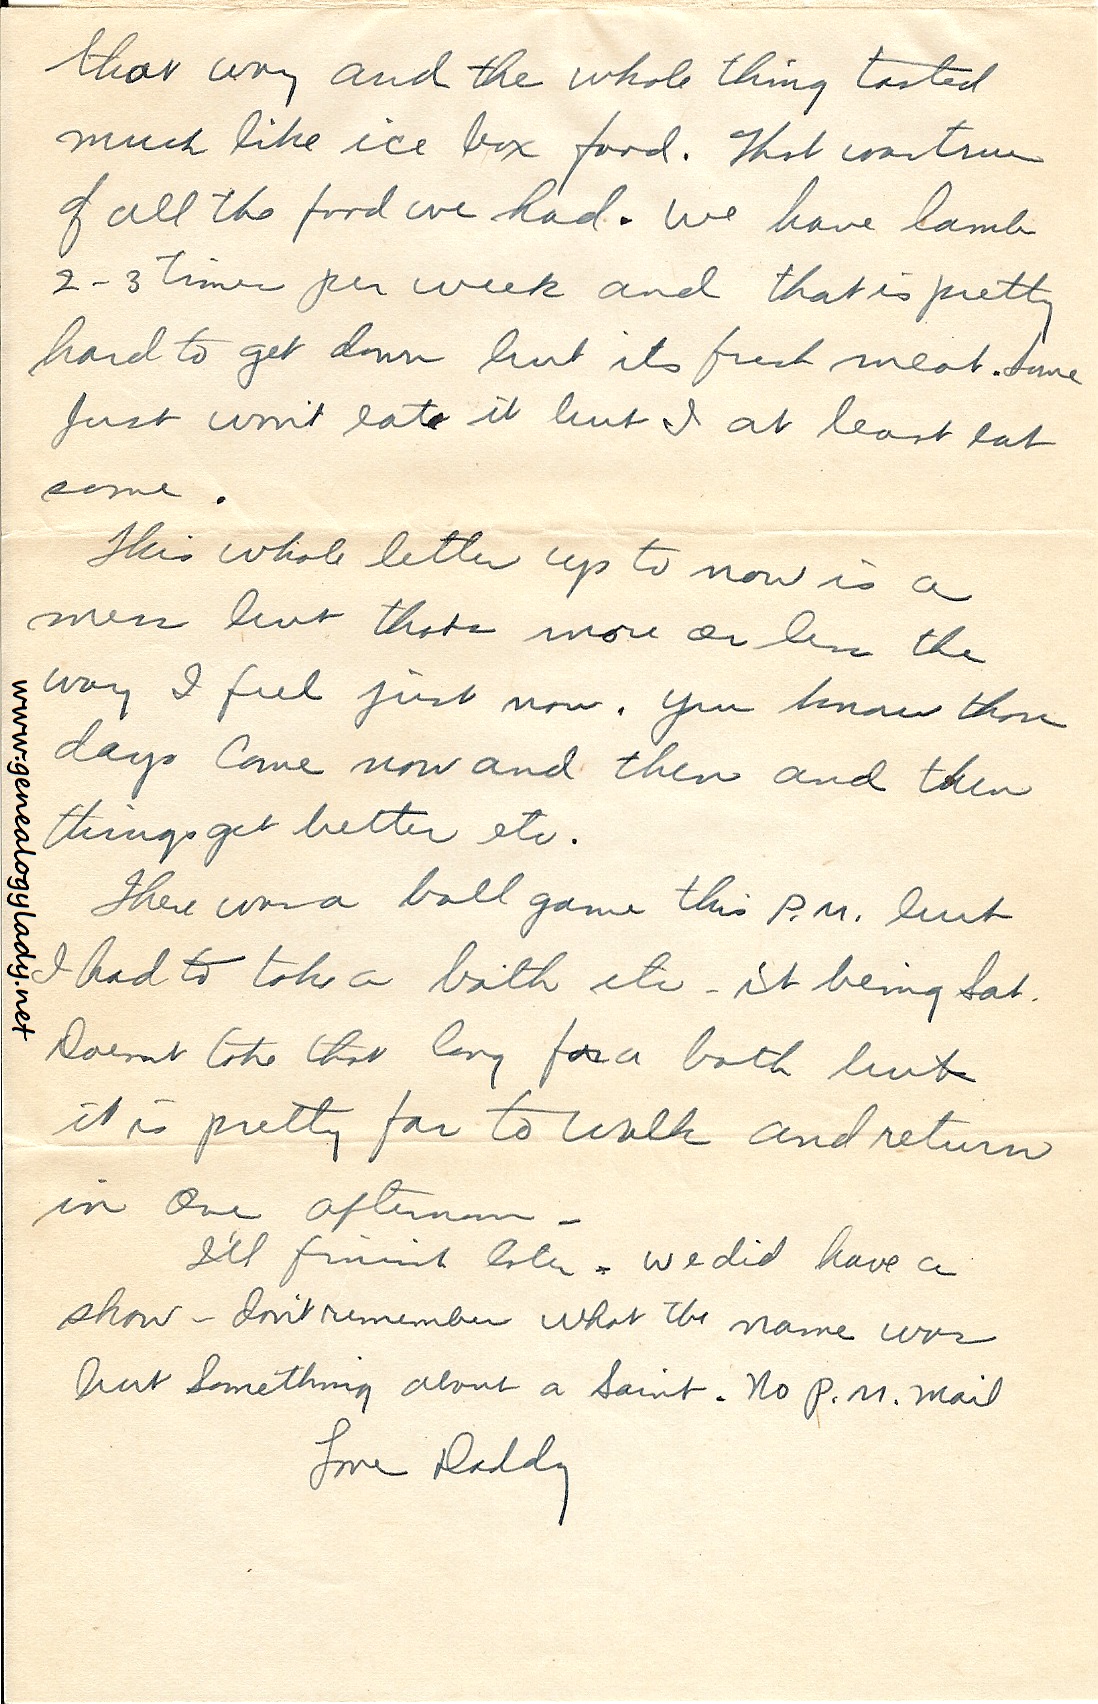 that way and the whole thing tasted
much like ice box food. That was true
of all the food we had. We have lamb
2-3 times per week and that is pretty
hard to get down but its fresh meat. Some
just won't eat it but I at least eat
some.
This whole letter up to now is a
mess but thats more or less the
way I feel just now. You know those
days come now and then and then
things get better etc.
There was a ball game this P.M. but
I had to take a bath etc - it being Sat.
Doesnt take that long for a bath but
it is pretty far to walk and return
in one afternoon -
I'll finish later. We did have a
show - don't remember what the name was
but something about a Saint. No P.M. mail
Love Daddy
www.genealogylady.net